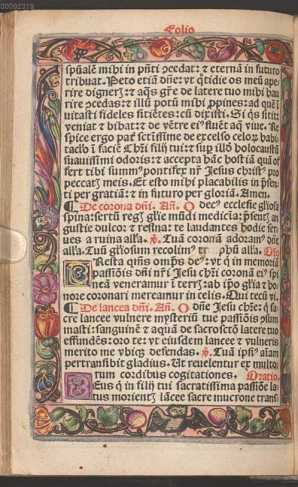 Folio
spũalẽ mihi in pñti ꝓcedat: ⁊ eternã in futuro
tribuat. Peto etiã dñe: vt q̃tidie os meũ ape/
rire digneŕ: ⁊ aq̃s gr̃e de latere tuo mihi hau
rire ꝯcedas: ⁊ illũ potũ mihi ꝓpines: ad quẽ i
uitasti fideles sitiẽtes: cũ dixisti. Si q̃s sitit:
veniat ⁊ bibat: ⁊ de vẽtre ei⁹ fluẽt aq̃ viue. Re
spice ergo pat̃ sctissime de excelso celoꝝ habi
taclo ĩ faciẽ Chr̃i filij tui: ⁊ sup illd holocaustũ
suauissimi odoris: ⁊ accepta hãc hostiã quã of
fert tibi summ⁹ pontifex nr̃ Jesus christ⁹ pro
peccat̃ meis. Et esto mihi placabilis in p̃sen/
ti per gratiã: ⁊ in futuro per gloriã. Amen.
¶ De corona dñi. Añ. O dec⁹ ecclesie gl̃osa
spina: sertũ reg̃ gl̃ie mũdi medicia: p̃senť an
gustie dulcor: ⁊ resna: te laudantes hodie ser-
ues a ruina alľa. ℣. Tuã coronã adoram⁹ dñe
alľa. Tuã gl̃iosum recolim⁹ phũ alľa. Orõ
Resta q̃s oĩps de⁹: vt q̃ in memoriã
passiõis dñi nr̃i Jesu chr̃i coronã ei⁹ spi
neã veneramur ĩ terŕ: ab ip̃o gl̃ia ⁊ ho
nore coronari mereamur in celis. Qui tecũ vi.
¶ De lancea dñi. Añ. O dñe Jesu chr̃e: q̃ sa-
cre lancee vulnere mysteriũ tue passiõis ꝯsum
masti: sanguinẽ ⁊ aquã de sacrosctõ latere tuo
effundẽs: oro te: vt eiusdem lancee ⁊ vulneris
merito me vbiq̃ defendas. ℣. Tuã ip̃si⁹ aĩam
pertransibit gladius. Ut reuelentur ex multo
rum cordibus cogitationes. Oratio.
Eus q̃ in filij tui sacratissima passiõe la
tus morienť lãcee sacre mucrone trans